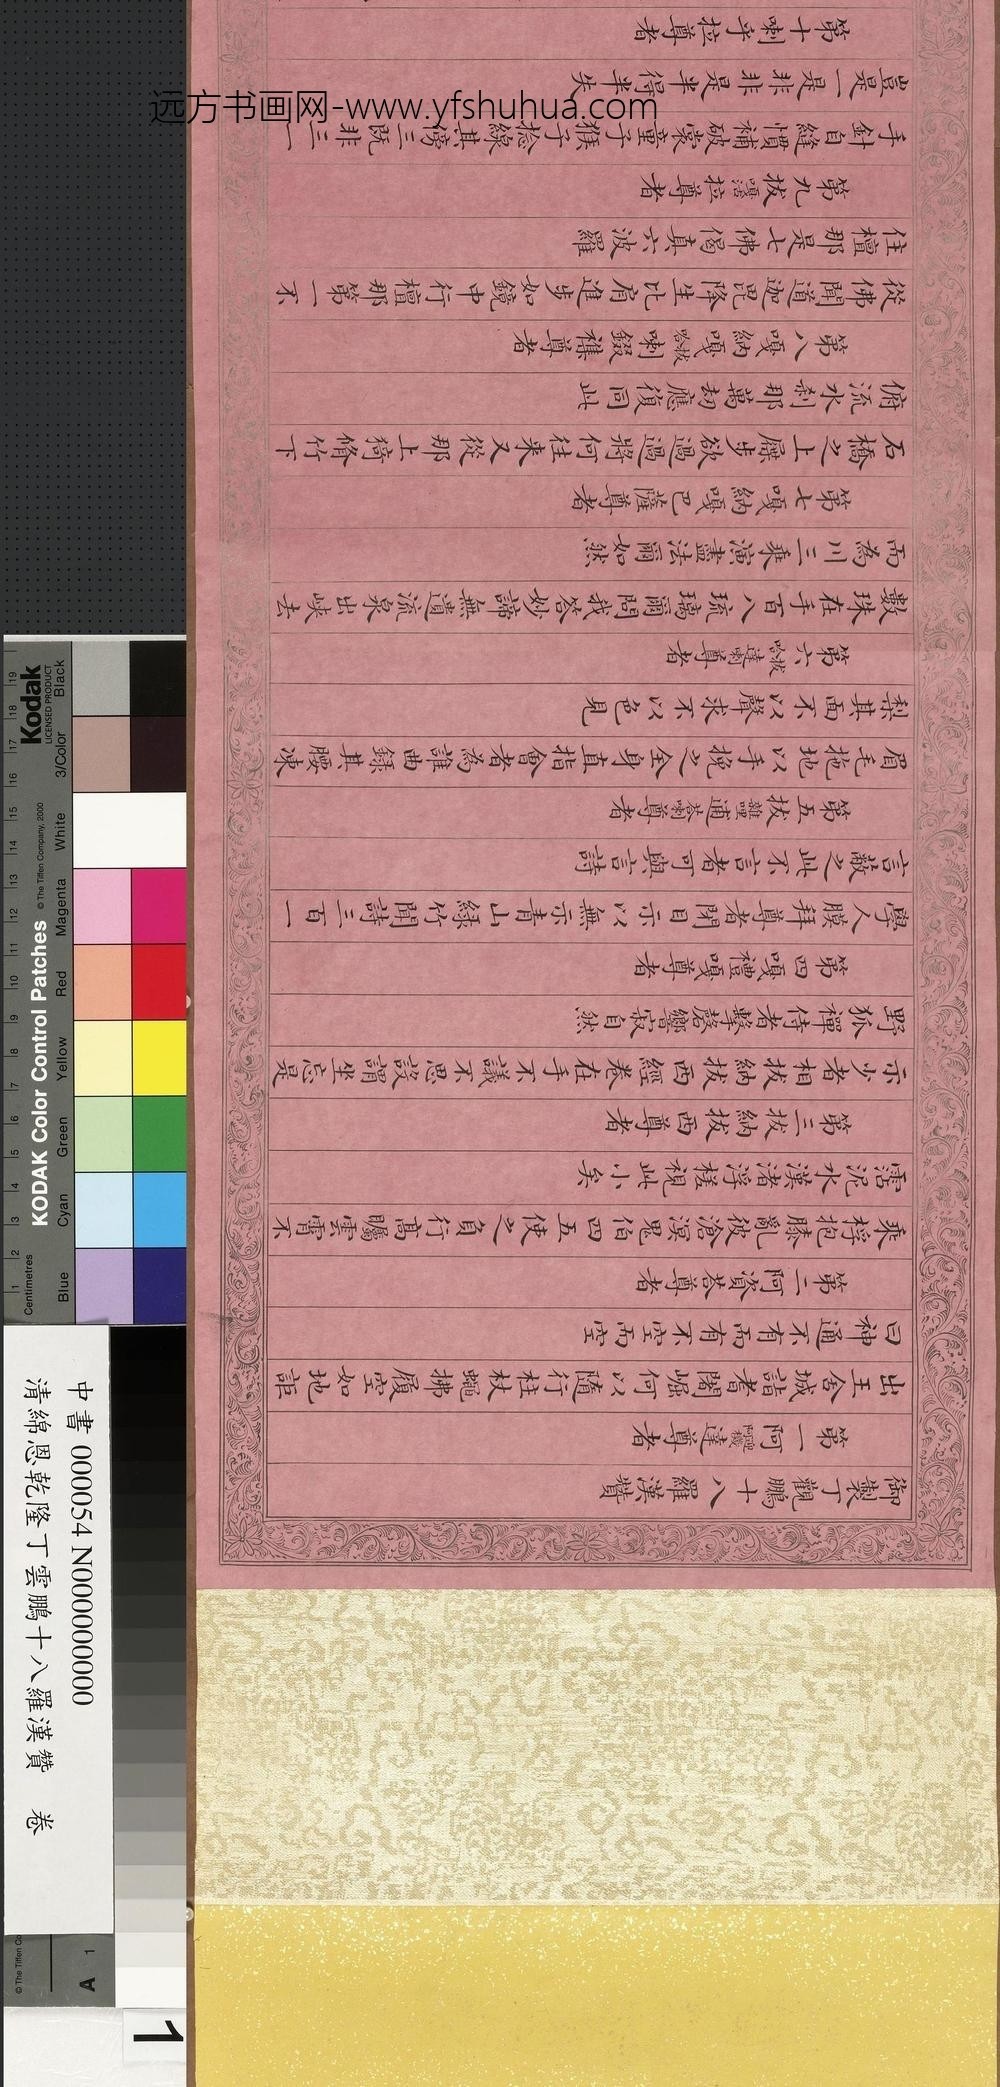 御製丁觀鵬十八羅漢贊
第一阿迎阿機達尊者
出王舍城詣耆闍崛何以隨行柱杖蠅拂履空如地詎
曰神通不有而有不空而空
第二阿資荅尊者
乘桴抱膝亂彼滄溟鬼伯四五使之負行高矚雲霄不
霑泥水漢渚浮槎視此小矣
第三拔納拔西尊者
示少者相拔納拔西經卷在手不議不思設謂坐忘是
野狐禪侍者擊磬嚮寂自然
第四嘎禮嘎尊者
學人膜拜尊者閉目示以無示青山綠竹聞詩三百一
言蔽之此不言者可與言詩
第五拔雜哩逋荅喇尊者
眉毛拖地以手挽之全身直指會者為誰曲錄其腰凍
梨其面不以聲求不以色見
第六拔哈達喇尊者
數珠在手百八琉璃爾問我答妙諦無遺流泉出峽去
而為川三乘演盡法爾如然
第七嘎納嘎巴薩尊者
石橋之上屧步欲過過將何往來又從那上猗脩竹下
俯流水刹那萬劫應復同此
第八嘎納嘎拔哈喇錣雜尊者
從佛聞道迦毘降生比肩進步如鏡中行檀那第一不
住檀那是七佛偈真六波羅
第九拔嘎沽拉尊者
手針自縫慣補破裳童子猴子捻線其傍三既非三一
豈是一是非非是半得半失
第十喇乎拉尊者
远方书画网-www.yfshuhua.com
中書 000054 N000000000
清綿恩乾隆丁雲鵬十八羅漢贊 卷
KODAK Color Control Patches
© The Tiffen Company, 2000
Kodak
LICENSED PRODUCT
Centimetres
1 2 3 4 5 6 7 8 9 10 11 12 13 14 15 16 17 18 19
Blue Cyan Green Yellow Red Magenta White 3/Color Black
© The Tiffen Co
A 1
1